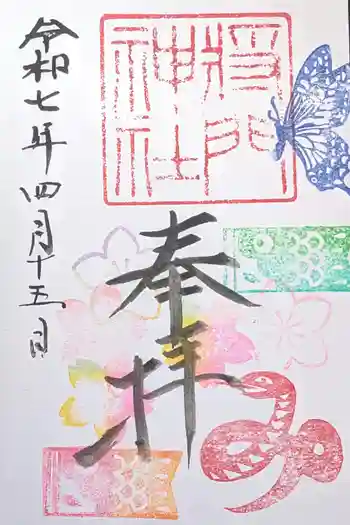 奉拝
将門
神社
令和七年四月十五日